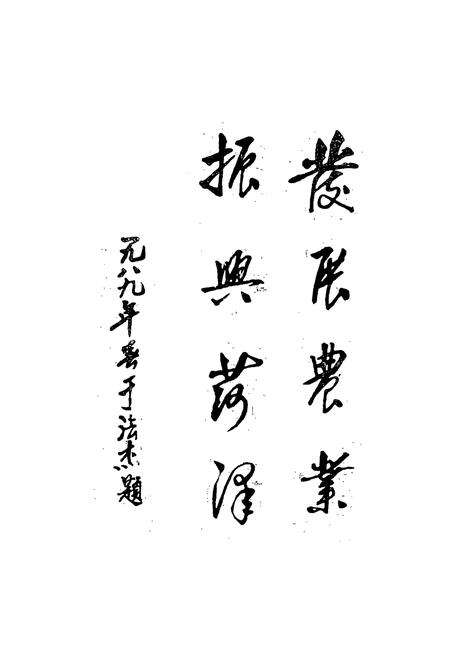 發展農業
振興菏泽
一九八九年春于法杰题